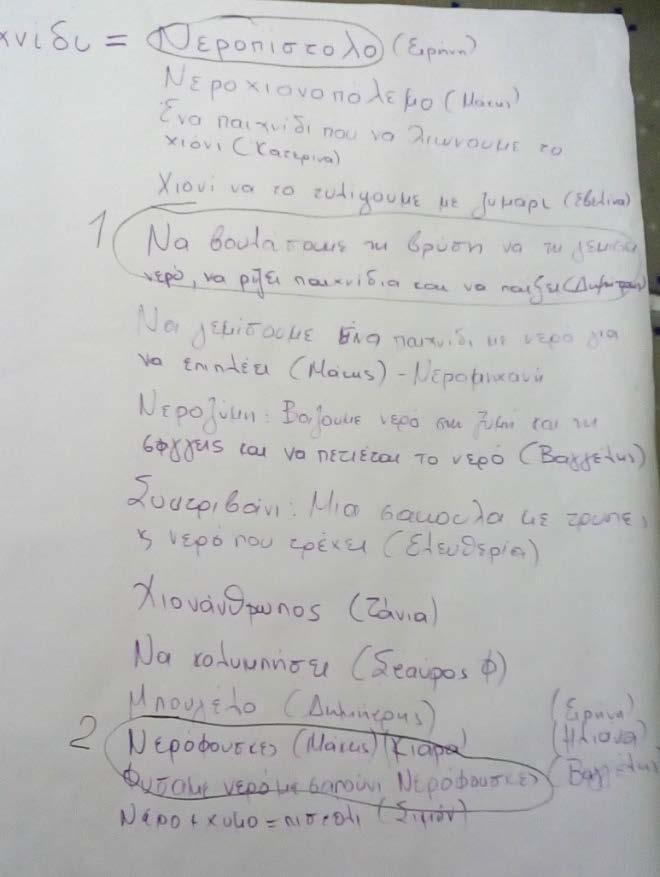 χνίδι = Νεροπίστολο (Ειρήνη)
Νεροχιονοπόλεμο (Μάκης)
Ένα παιχνίδι που να λιώνουμε το
χιόνι (Κατερίνα)
Χιόνι να το τυλίγουμε με ζυμάρι (Εβελίνα)
1 Να βουτάμε τη βρύση να τη
νερό, να ρίξει παιχνίδια και να παίξει
Να γεμίσουμε ένα παιχνίδι με νερό για
να επιπλέει (Μάκης) - Νερομηχανή
Νεροζύμη: Βάζουμε νερό στη ζύμη και τη
σφίγγεις και να πετιέται το νερό (Βαγγέλης)
: Μια σακούλα με τρύπες
κ νερό που τρέχει (Ελευθερία)
Χιονάνθρωπος (Τάνια)
Να κολυμπήσει (Σταύρος Φ)
Μπουγέλο (Δημήτρης)
2 Νερόφουσκες (Μάκης) (Κιάρα) (Ειρήνη)
(Ηλιάνα)
Φυσάμε νερό με σαπούνι Νερόφουσκες (Βαγγέλης)
Νερό + χυμο = πιστόλι (Σιμιόν)